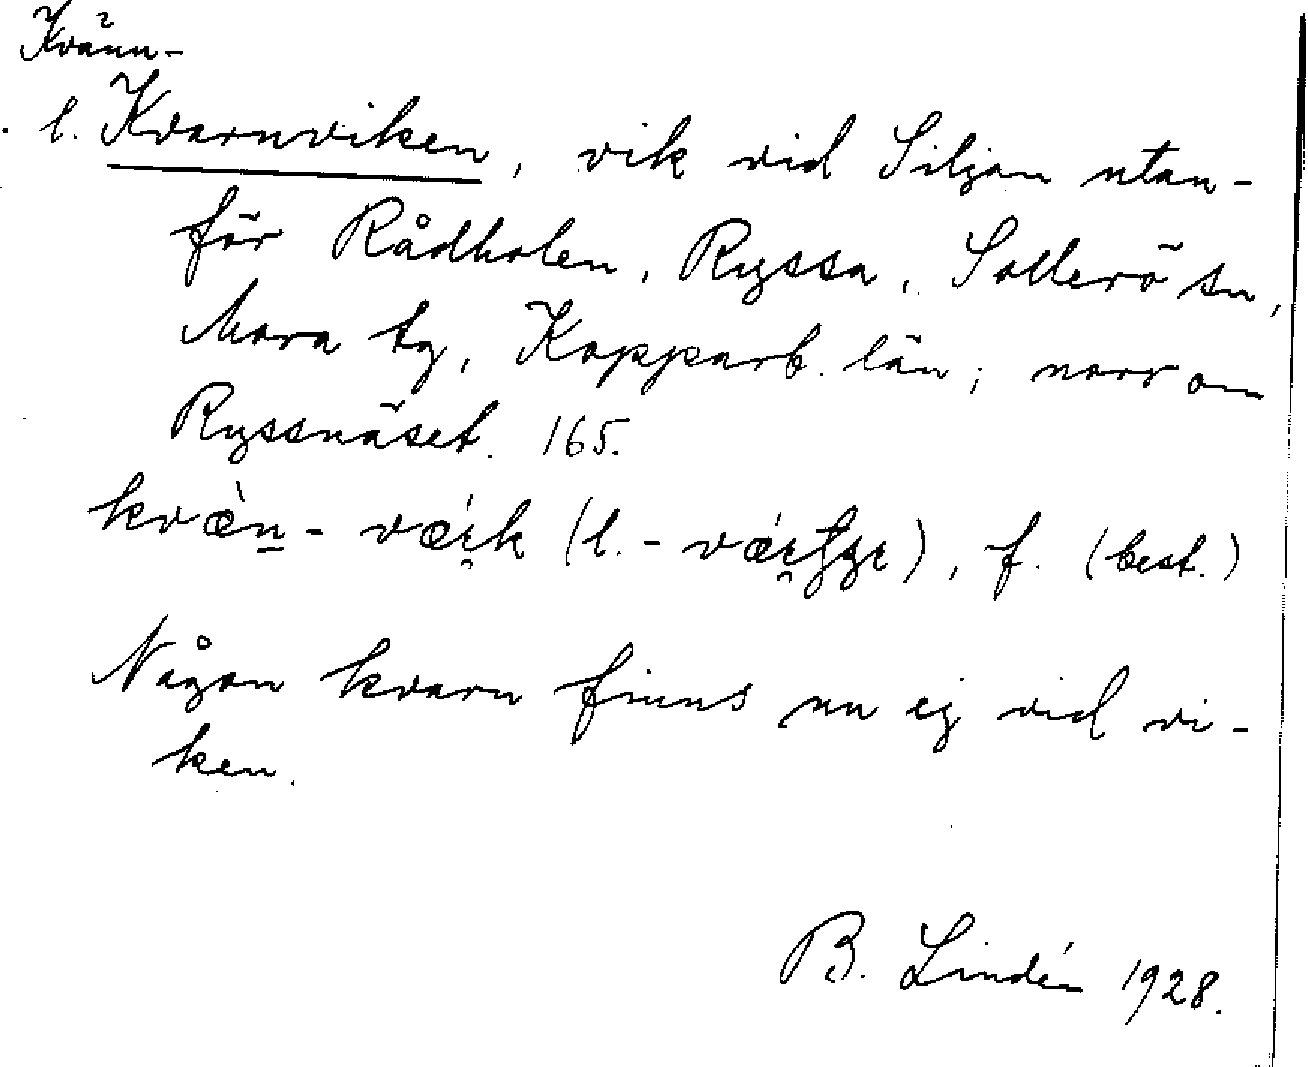 Kvänn-
l. Kvarnviken, vik vid Siljan utan-
för Rådholen, Ryssa, Sollerö sn,
Mora tg, Kopparb. län; norr om
Ryssnäset. 165.
kvæ̀n̲- vǽi̯k (l. - f. (best.)
Någon kvarn finns nu ej vid vi-
ken.
B. Lindén 1928.